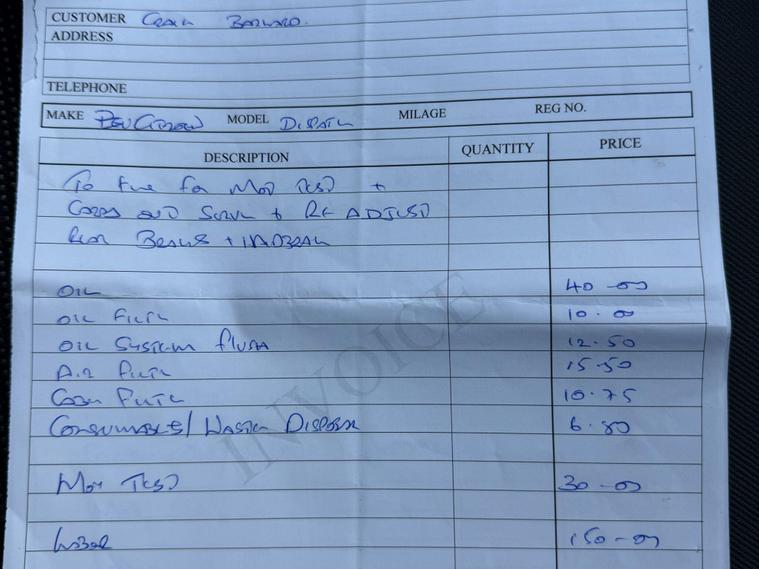 CUSTOMER Craig
ADDRESS
TELEPHONE
MAKE MODEL Dispatch MILAGE REG NO.
DESCRIPTION QUANTITY PRICE
To for MOT Test +
out Service + Re ADJUST
Rear Brakes + HANDBRAKE
INVOICE
OIL 40-00
OIL Filter 10-00
OIL System flush 12.50
Air Filter 15.50
Cabin Filter 10.75
Consumables/Waste Disposal 6.80
MOT Test 30-00
Labour 150-00